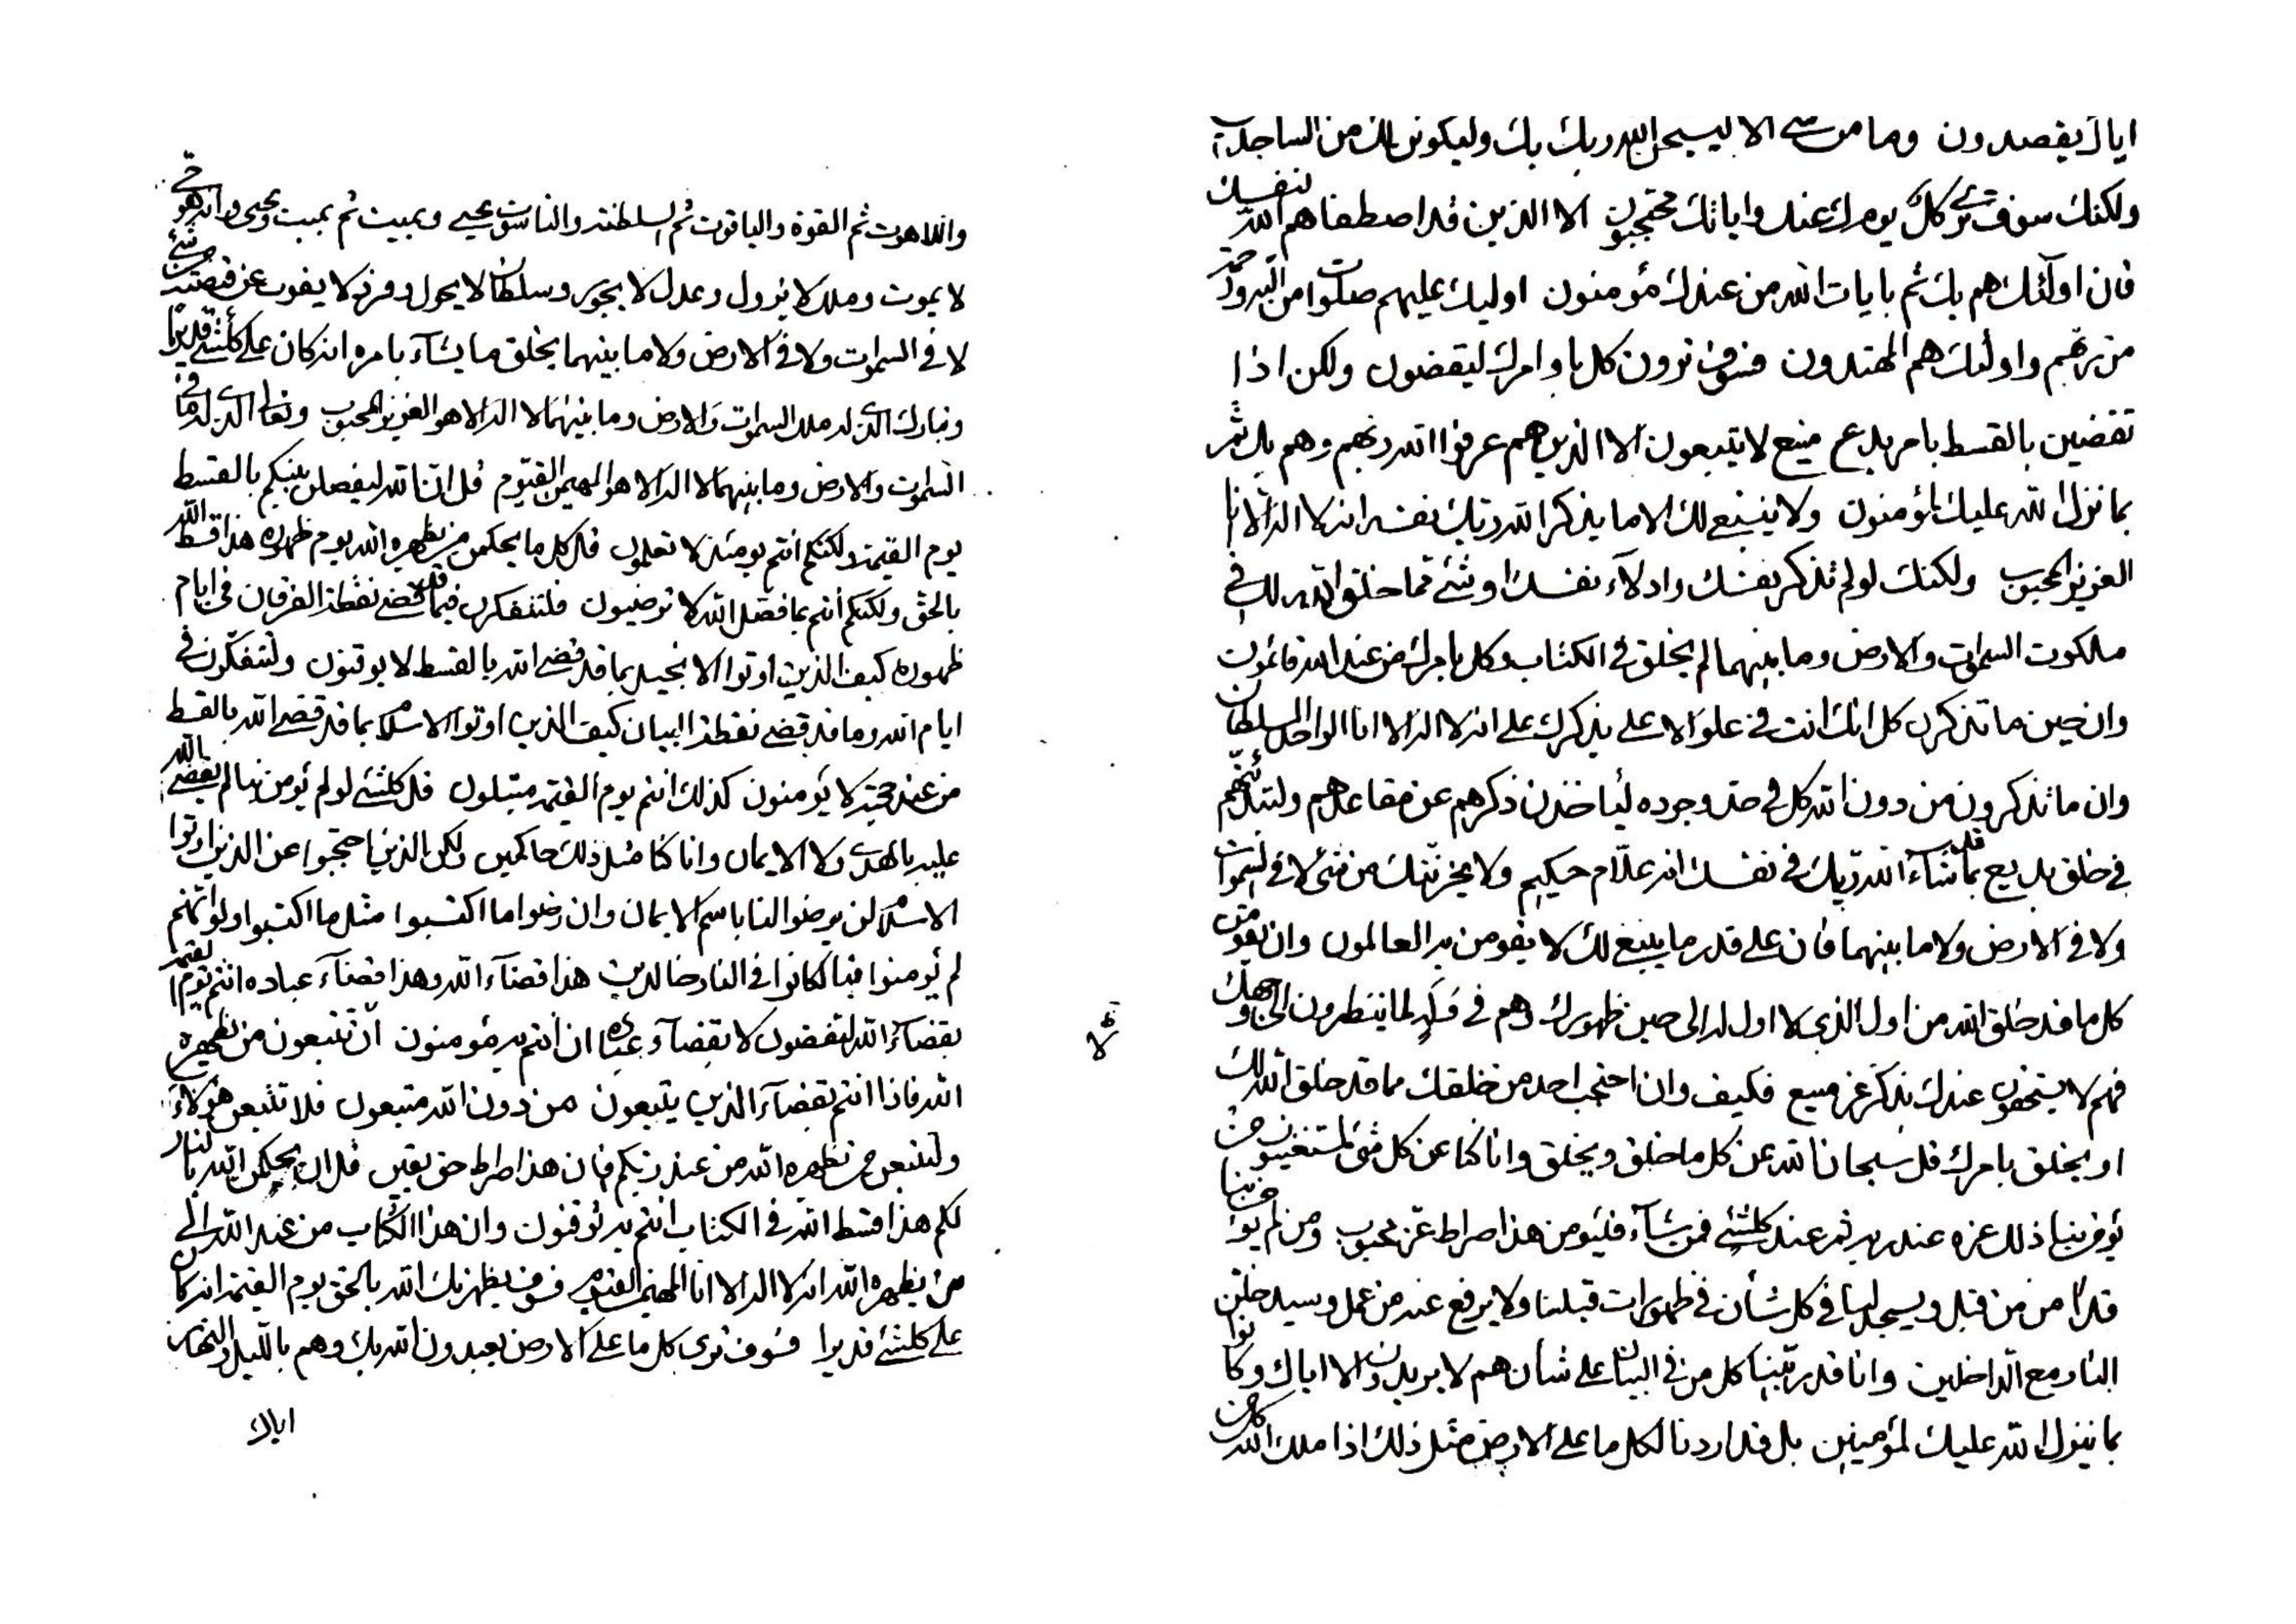 اياك يقصدون وما من شئ الا ليسبحن الله ربك بك وليكونن لك من الساجدين
ولكنك سوف ترى كل يومئذ عنك وايانك محتجبون الا الذين قد اصطفاهم الله لنفسك
فان اولئك هم بك ثم بايات الله من عندك مؤمنون اوليك عليهم صلوات من الله ورحمة
من ربهم واولئك هم المهتدون فسوف ترون كل باوامرك ليقضون ولكن اذا
تقضين بالقسط بامر بدع منيع لا يتبعون الا الذين هم عرفوا الله ربهم وهم بك ثم
بما نزل الله عليك لمؤمنون ولا ينبغي لك الا ما يذكر الله ربك نفسه انه لا اله الا انا
العزيز المحبوب ولكنك لو لم تذكر نفسك وادلاء نفسك او شئ مما خلق الله لك في
ملكوت السموات والارض وما بينهما لم يخلق في الكتاب وكل بامرك من عند الله قائمون
وان حين ما تذكرن كل انك انت في علو الاعلى يذكرك على انه لا اله الا انا الواحد السلطان
وان ما تذكرون من دون الله كل في حد وجوده ليأخذن ذكرهم عن مقاعدهم ولتبدئنهم
في خلق بديع بما قد شاء الله ربك في نفسك انه علام حكيم ولا يحزننك من شئ لا في السموات
ولا في الارض ولا ما بينهما فان على قدر ما ينبغي لك لا يقومن به العالمون وان يقومن
كل ما قد خلق الله من اول الذي لا اول له الى حين ظهورك وهم في لما ينتظرون الى وجهك
فهم لا يستحقون عندك بذكر عز منيع فكيف وان احتجب احد من خلقك مما قد خلق الله لك
او يخلق بامرك قل سبحان الله عن كل ما خلق ويخلق وانا كنا عن كل شئ لمستغنيون من
يؤمن بنا ذلك عزه عند ربه ثم عند كلشئ فمن شاء فليؤمن هذا صراط عز محبوب ومن لم يؤمن بنا
قد امن من قبل ويسجد لنا في كل شأن في ظهورات قبلنا ولا يرفع عنه من عمل وسيدخلن
النار مع الداخلين وانا قد ربينا كل من في البيان على شأن هم لا يريدون الا اياك وكانوا
بما ينزل الله عليك لمؤمنين بل قد اردنا لكل ما على الارض مثل ذلك اذا ملك الله
واللاهوت ثم القوة والياقوت ثم السلطنة والناسوت يحيي ويميت ثم يميت ويحيى وانه هو حي
لا يموت وملك لا يزول وعدل لا يجور وسلطان لا يحول وفرد لا يفوت عن قبضته من شئ
لا في السموات ولا في الارض ولا ما بينهما يخلق ما يشاء بامره انه كان على كلشئ قديرا
وتبارك الذي له ملك السموات والارض وما بينهما لا اله الا هو العزيز المحبوب وتعالى الذي له ما في
السموات والارض وما بينهما لا اله الا هو المهيمن القيوم قل ان الله ليفصلن بينكم بالقسط
يوم القيمة ولكنكم انتم يومئذ لا تعلمون قل كل ما يحكمن من يظهره الله يوم ظهوره هذا قسط الله
بالحق ولكنكم انتم بما فصل الله لا ترضيون فلتتفكرن فيما قد قضى نقطة الفرقان في ايام
ظهوره كيف الذين اوتوا الانجيل بما قد قضى الله بالقسط لا يوقنون ولتتفكرون في
ايام الله وما قد قضى نقطة البيان كيف الذين اوتوا الاسلام بما قد قضى الله بالقسط
من عند حجته لا يؤمنون كذلك انتم يوم القيمة مبتلون قل كلشئ لو لم يؤمن بنا لم يقضى الله
عليه بالهدى ولا الايمان وانا كنا مثل ذلك حاكمين ولكن الذين احتجبوا عن الذين اوتوا
الاسلام لن يرضوا لنا باسم الايمان وان رضوا ما اكتسبوا مثل ما اكتسبوا ولو انهم
لم يؤمنوا بنا لكانوا في النار خالدين هذا قضاء الله وهذا قضاء عباده انتم يوم القيمة
بقضاء الله لتقضون لا بقضاء عباده ان انتم به مؤمنون ان تتبعون من يظهره
الله فاذا انتم بقضاء الذين يتبعون من دون الله متبعون فلا تتبعن هؤلاء
ولتتبعن من يظهره الله من عند ربكم فان هذا صراط حق يقين قل ان يحكمن الله بالنار
لكم هذا قسط الله في الكتاب انتم به توقنون وان هذا الكتاب من عند الله الى
من يظهره الله انه لا اله الا انا المهيمن القيوم فسوف يظهرنك الله بالحق يوم القيمة انه كان
على كلشئ قديرا فسوف ترى كل ما على الارض يعبدون الله بك وهم بالليل والنهار
اياك